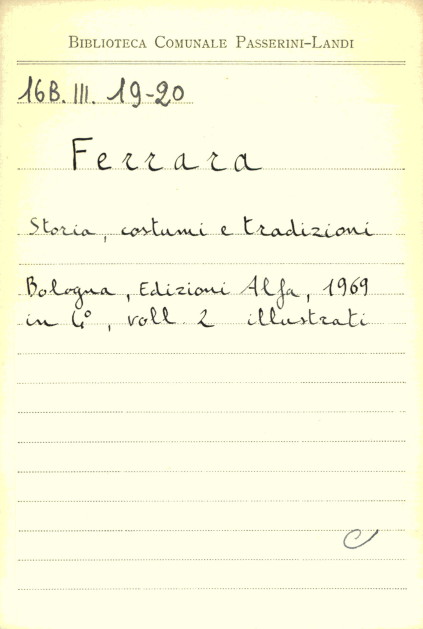 Biblioteca Comunale Passerini-Landi
16B. III. 19-20
Ferrara
Storia, costumi e tradizioni
Bologna, Edizioni Alfa, 1969
in 4°, voll. 2 illustrati